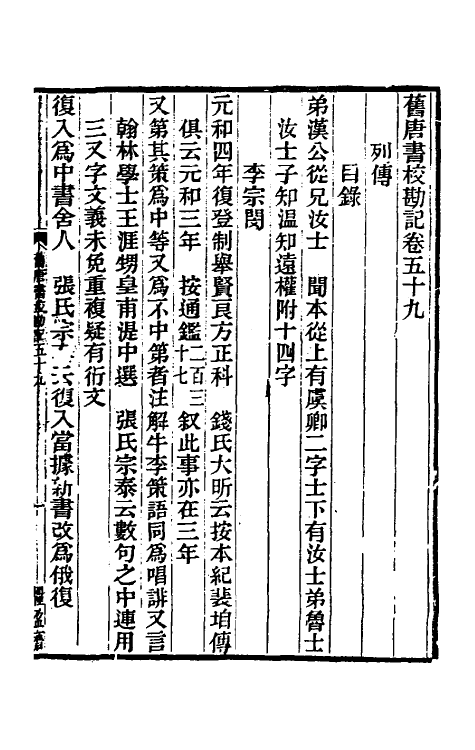 舊唐書校勘記卷五十九
列傳
目錄
弟漢公從兄汝士　聞本從上有虞卿二字士下有汝士弟魯士
汝士子知温知遠權附十四字
李宗閔
元和四年復登制舉賢良方正科　錢氏大昕云按本紀裴垍傳
俱云元和三年　按通鑑二百三十七叙此事亦在三年
又第其策爲中等又爲不中第者注解牛李策語同爲唱誹又言
翰林學士王涯甥皇甫湜中選　張氏宗泰云數句之中連用
三又字文義未免重複疑有衍文
復入爲中書舍人　張氏宗泰云復入當據新書改爲俄復